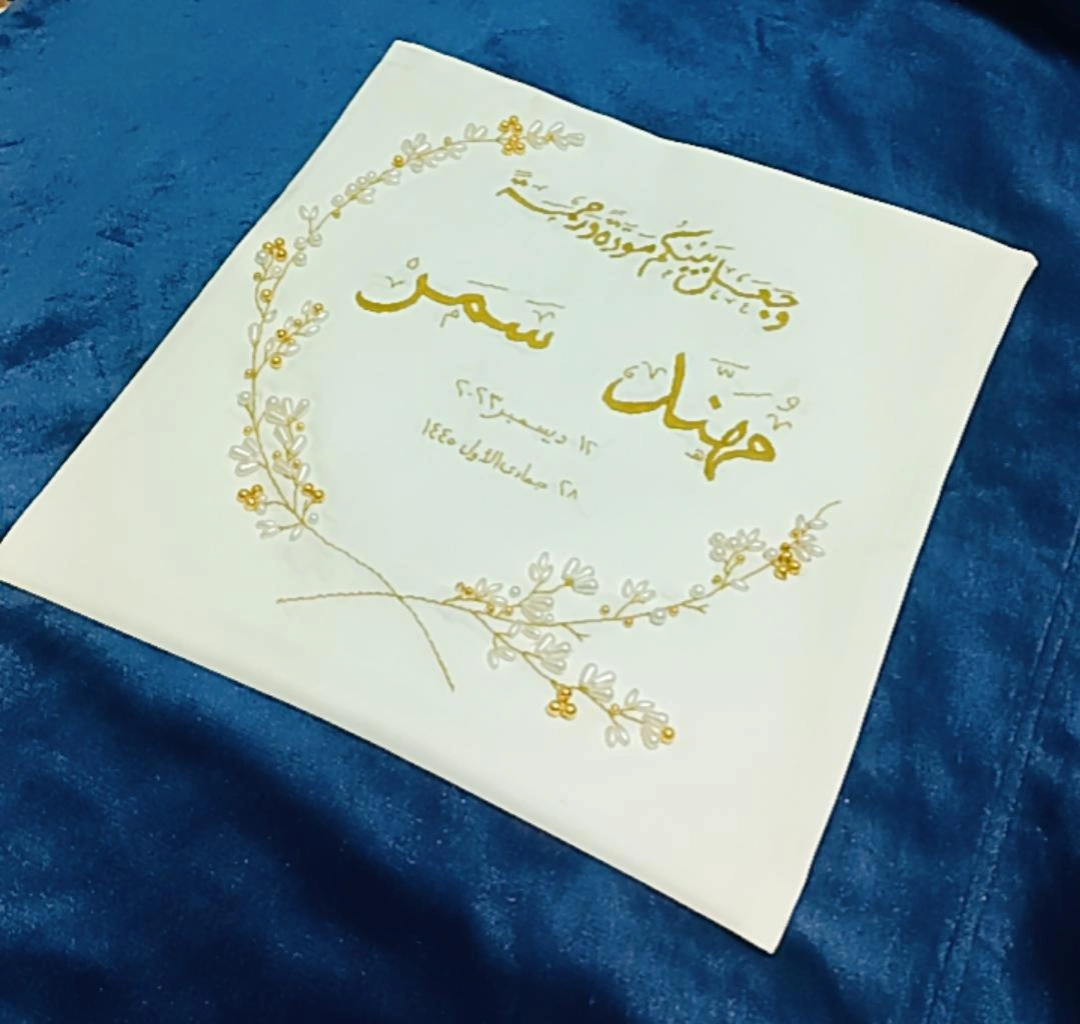 وجعل بينكم مودة ورحمة
مهند سمر
١٢ ديسمبر ٢٠٢٣
٢٨ جمادى الأول ١٤٤٥